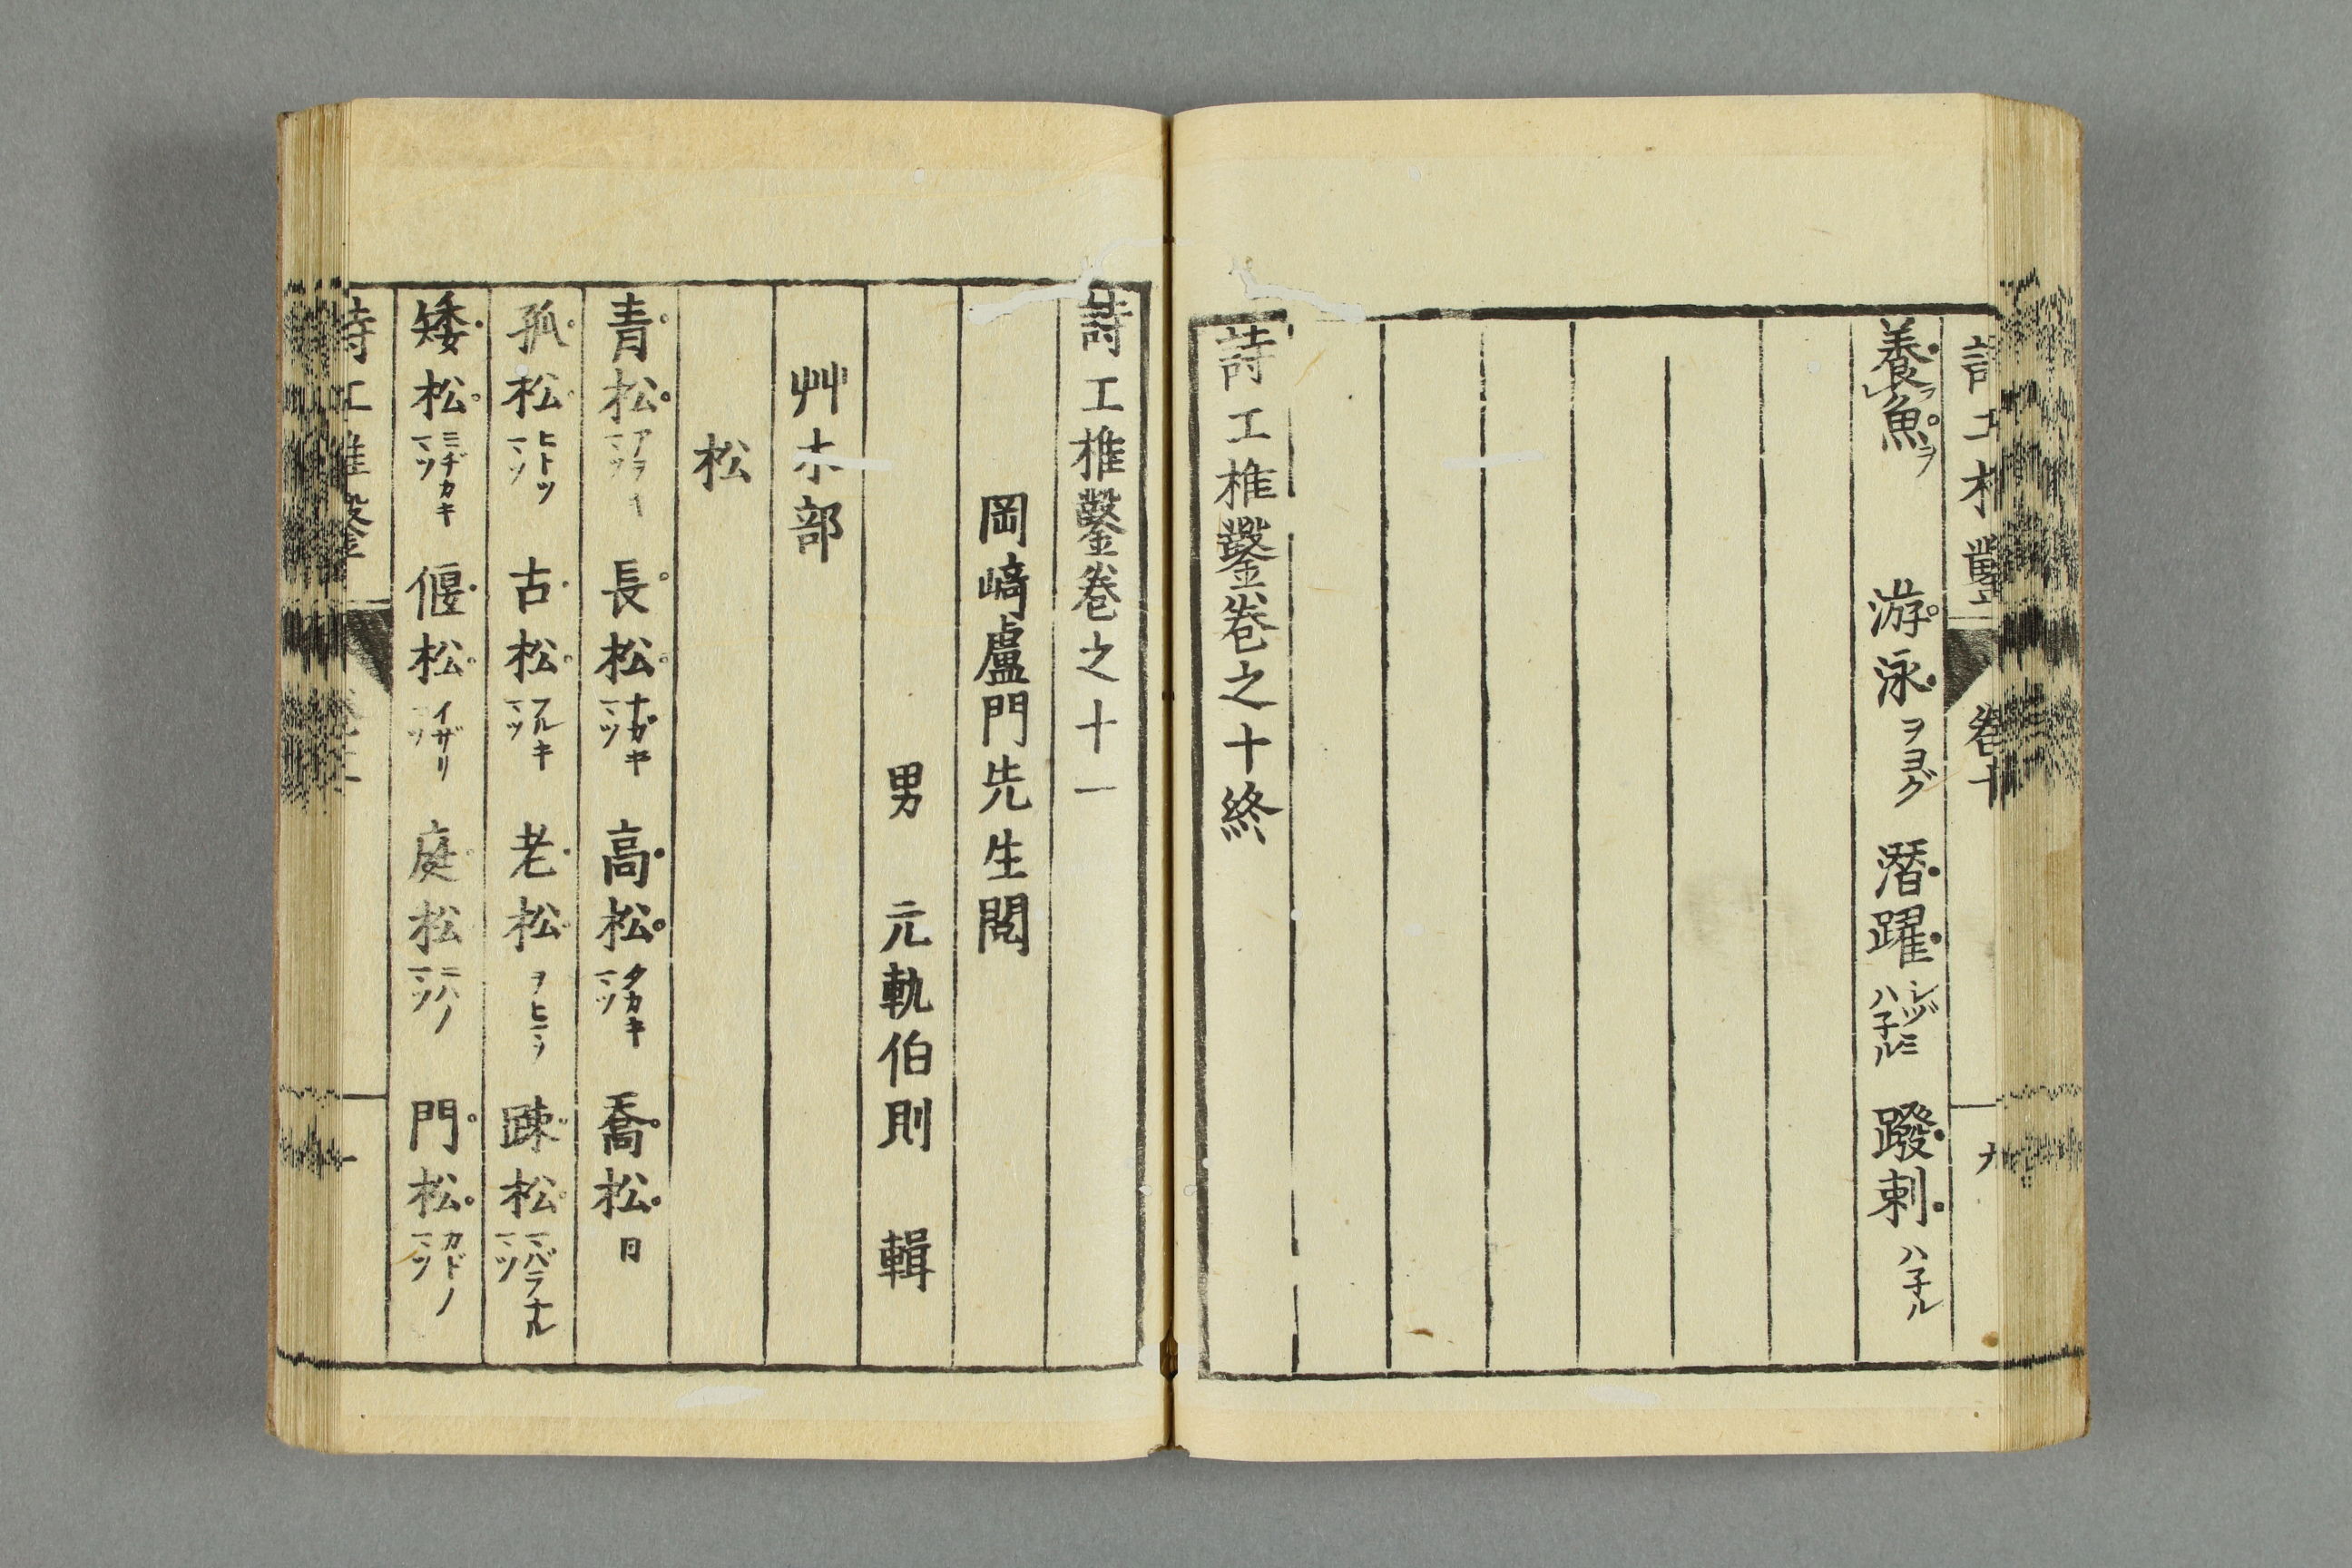 詩工椎鑿 卷十 九
養魚ヲ 游泳ヲヨグ 潛躍シヅミハ子ル 蹳剌ハ子ル
詩工椎鑿卷之十終
詩工椎鑿卷之十一
岡﨑盧門先生閲
男 元軌伯則 輯
艸木部
松
青松アヲキマツ 長松ナガキマツ 高松タカキマツ 喬松同
孤松ヒトツマツ 古松フルキマツ 老松ヲヒマツ 踈松マバラナルマツ
矮松ミヂカキマツ 偃松イザリマツ 庭松ニハノマツ 門松カドノマツ
詩工椎鑿